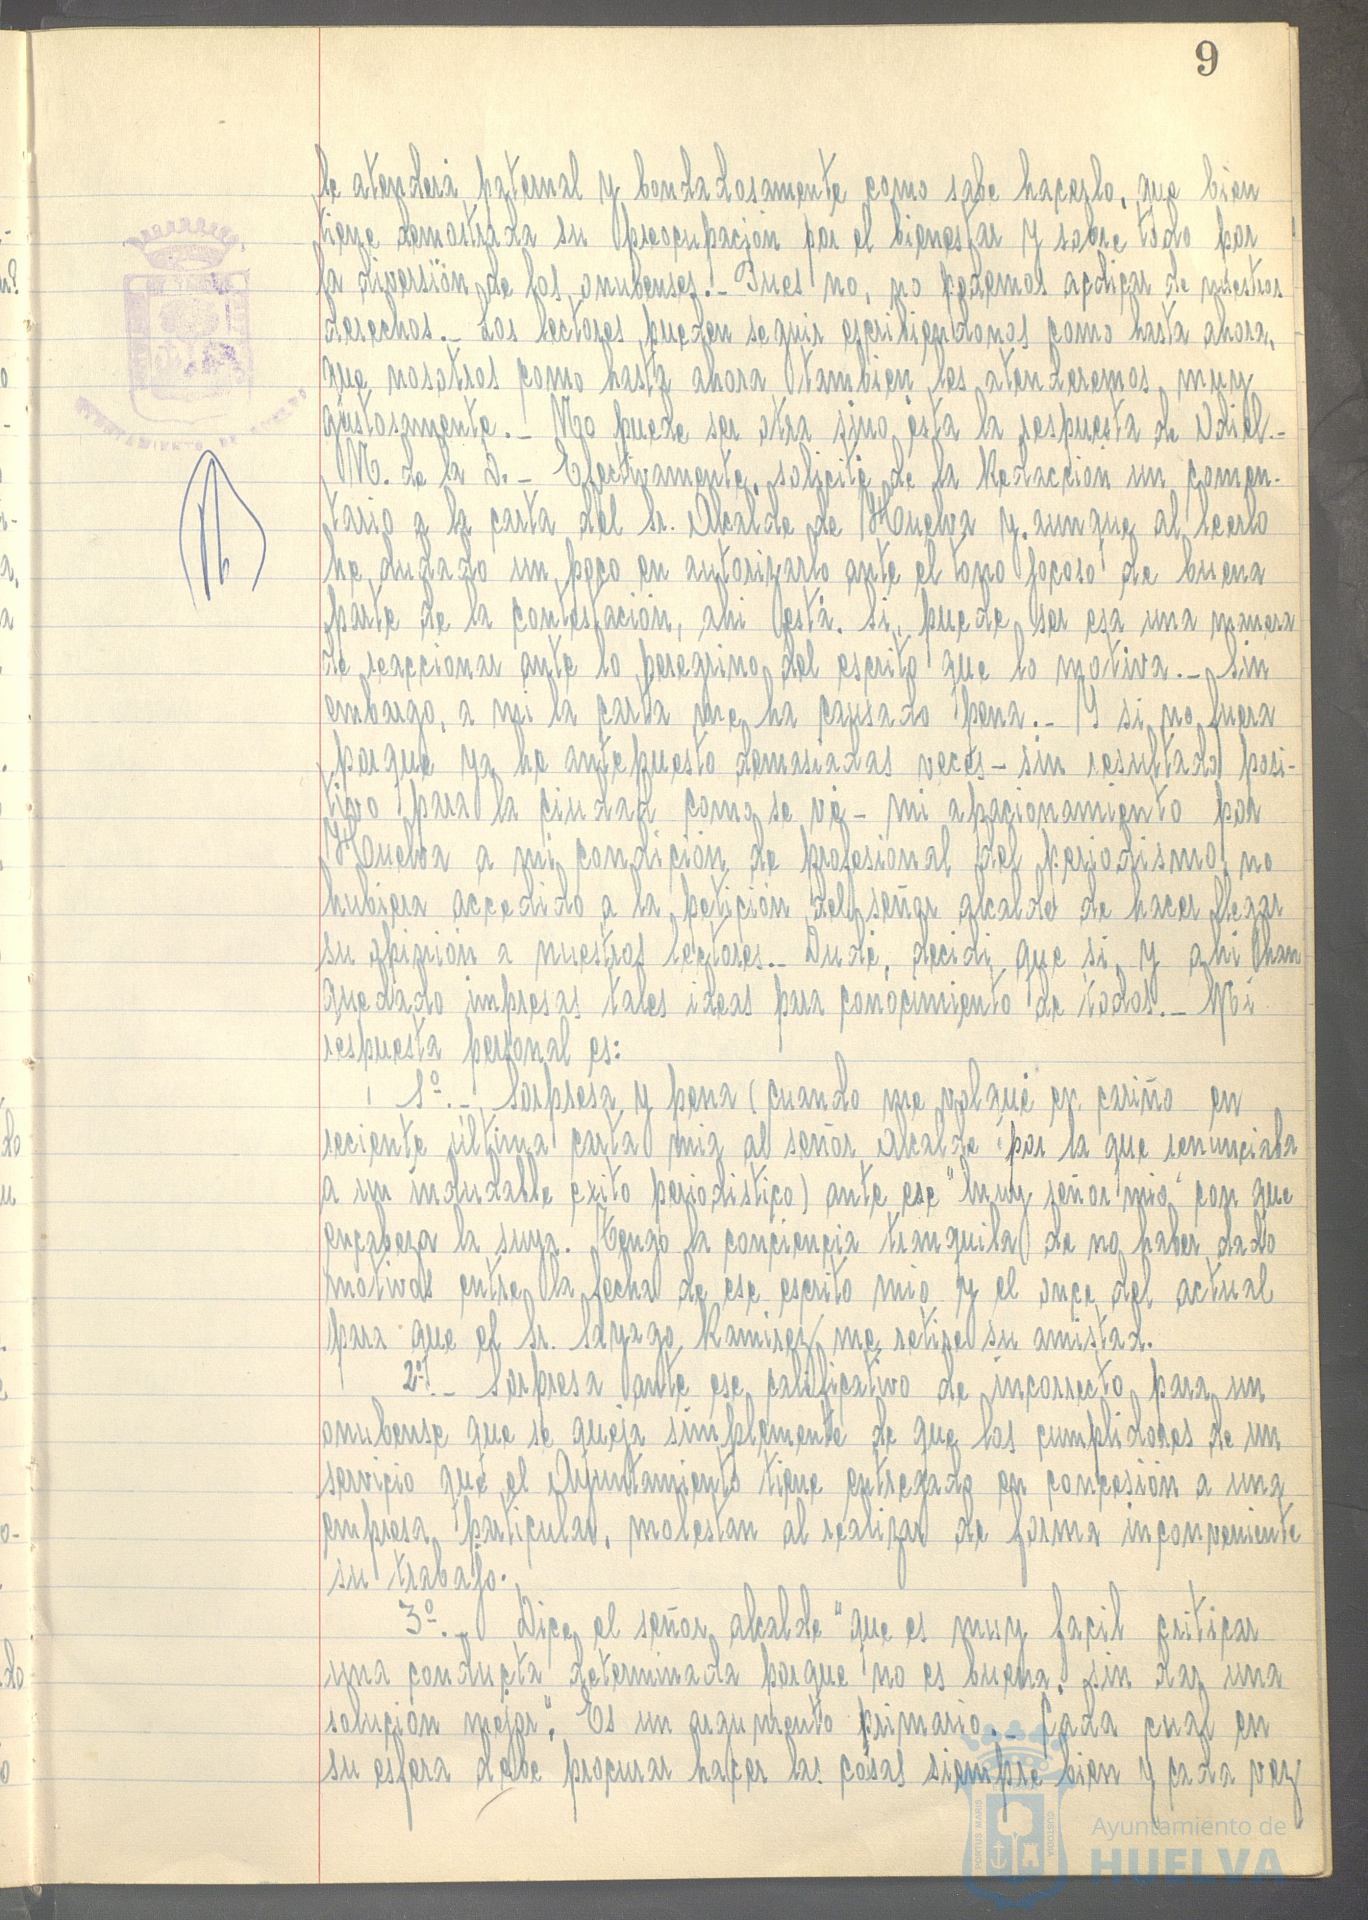 9
le atenderá paternal y bondadosamente como sabe hacerlo, que bien
tiene demostrada su preocupación por el bienestar y sobre todo por
la diversión de los onubenses.- Pues no, no podemos abdicar de nuestros
derechos.- Los lectores pueden seguir escribiendonos como hasta ahora,
que nosotros como hasta ahora tambien les atenderemos muy
gustosamente.- No puede ser otra sino esta la respuesta de Odiel.-
M. de la D.- Efectivamente, solicité de la Redacción un comen-
tario a la carta del Sr. Alcalde de Huelva y aunque al leerlo
he dudado un poco en autorizarlo ante el tono jocoso de buena
parte de la contestación, ahi está. Si, puede ser esa una manera
de reaccionar ante lo peregrino del escrito que lo motiva.- Sin
embargo, a mi la carta me ha causado pena.- Y si no fuera
porque ya he antepuesto demasiadas veces - sin resultado posi-
tivo para la ciudad como se vé - mi apasionamiento por
Huelva a mi condición de profesional del periodismo, no
hubiera accedido a la petición del señor alcalde de hacer llegar
su opinión a nuestros lectores.- Dudé, decidi que si, y ahi han
quedado impresas tales ideas para conocimiento de todos.- Mi
respuesta personal es:
1º.- Sorpresa y pena (cuando me volqué en cariño en
reciente última carta mia al señor Alcalde por la que renunciaba
a un indudable éxito periodistico) ante ese "Muy señor mio" con que
encabeza la suya. Tengo la conciencia tranquila de no haber dado
motivos entre la fecha de ese escrito mio y el once del actual
para que el Sr. Sayago Ramirez me retire su amistad.
2º.- Sorpresa ante ese calificativo de incorrecto para un
onubense que se queja simplemente de que los cumplidores de un
servicio que el Ayuntamiento tiene entregado en concesión a una
empresa particular, molestan al realizar de forma inconveniente
su trabajo.
3º.- Dice el señor alcalde "que es muy facil criticar
una conducta determinada porque no es buena, sin dar una
solución mejor". Es un argumento primario.- Cada cual en
su esfera debe procurar hacer las cosas siempre bien y cada vez
PORTUS MARIS
CUSTODIA
Ayuntamiento de
HUELVA